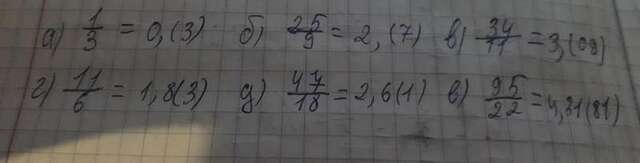 а) 1/3 = 0,(3) б) 25/9 = 2,(7) в) 34/11 = 3,(09)
г) 11/6 = 1,8(3) д) 47/18 = 2,6(1) в) 95/22 = 4,31(81)